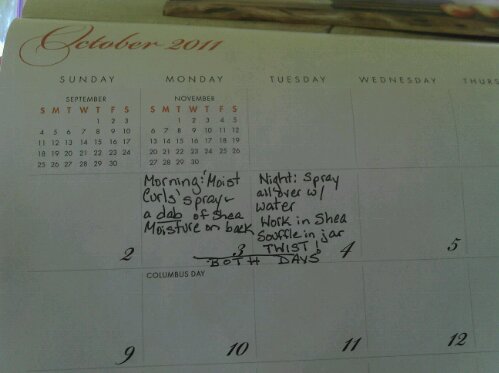 October 2011
SUNDAY MONDAY TUESDAY WEDNESDAY THURS
SEPTEMBER
S M T W T F S
1 2 3
4 5 6 7 8 9 10
11 12 13 14 15 16 17
18 19 20 21 22 23 24
25 26 27 28 29 30
NOVEMBER
S M T W T F S
1 2 3 4 5
6 7 8 9 10 11 12
13 14 15 16 17 18 19
20 21 22 23 24 25 26
27 28 29 30
Morning: 'Moist
Curls' spray -
a dab of Shea
Moisture on back
Night: Spray
all over w/
water
Work in Shea
Souffle in jar
TWIST!
BOTH DAYS
2 3 4 5
COLUMBUS DAY
9 10 11 12